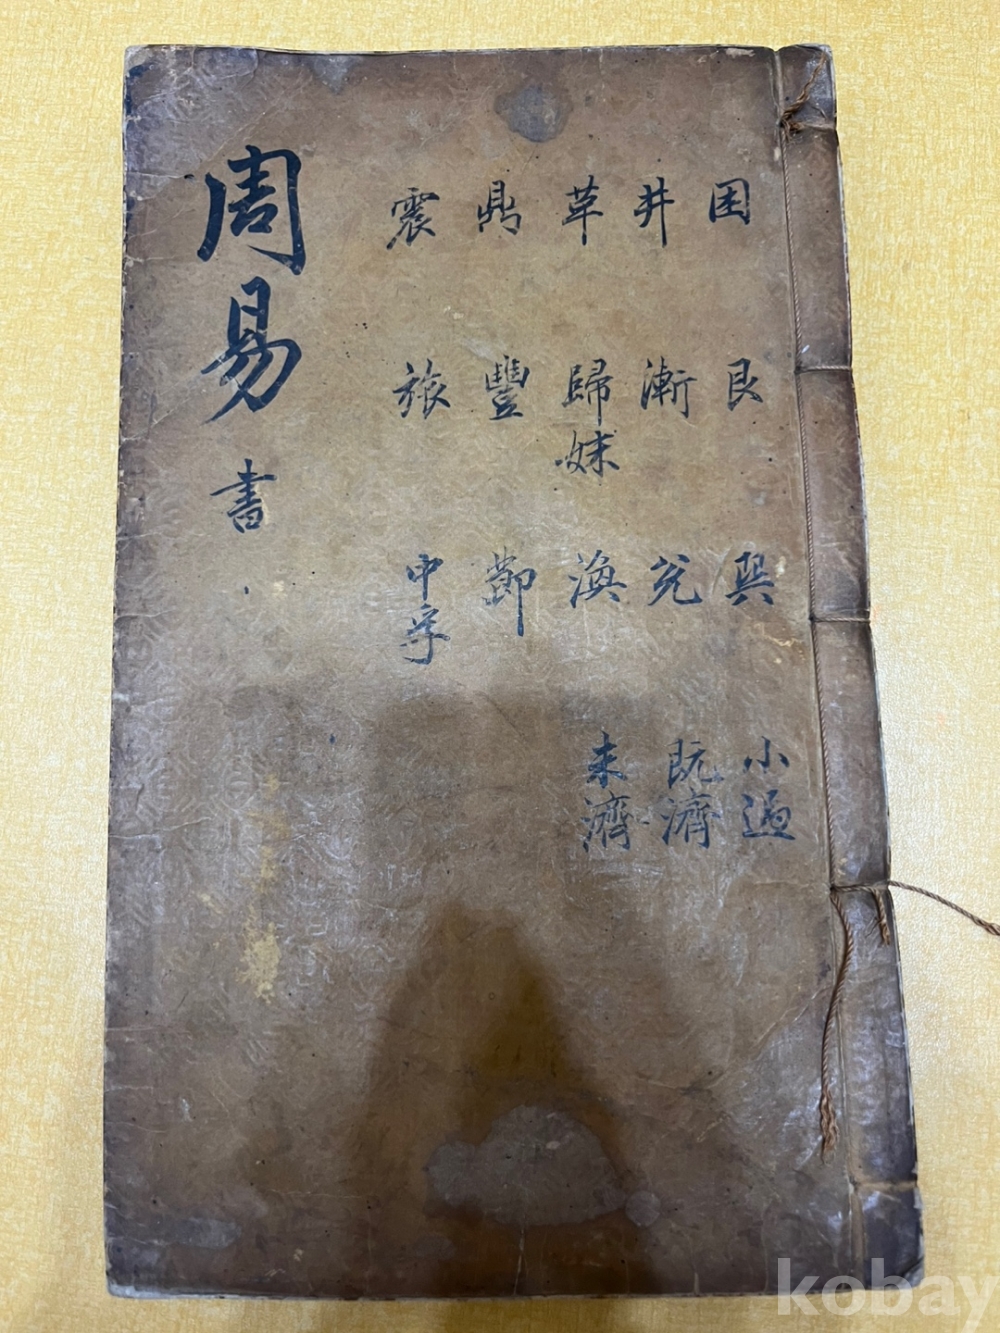 周易 書
困 井 革 鼎 震
艮 漸 歸妹 豐 旅
巽 兌 渙 節 中孚
小過 既濟 未濟
kobay